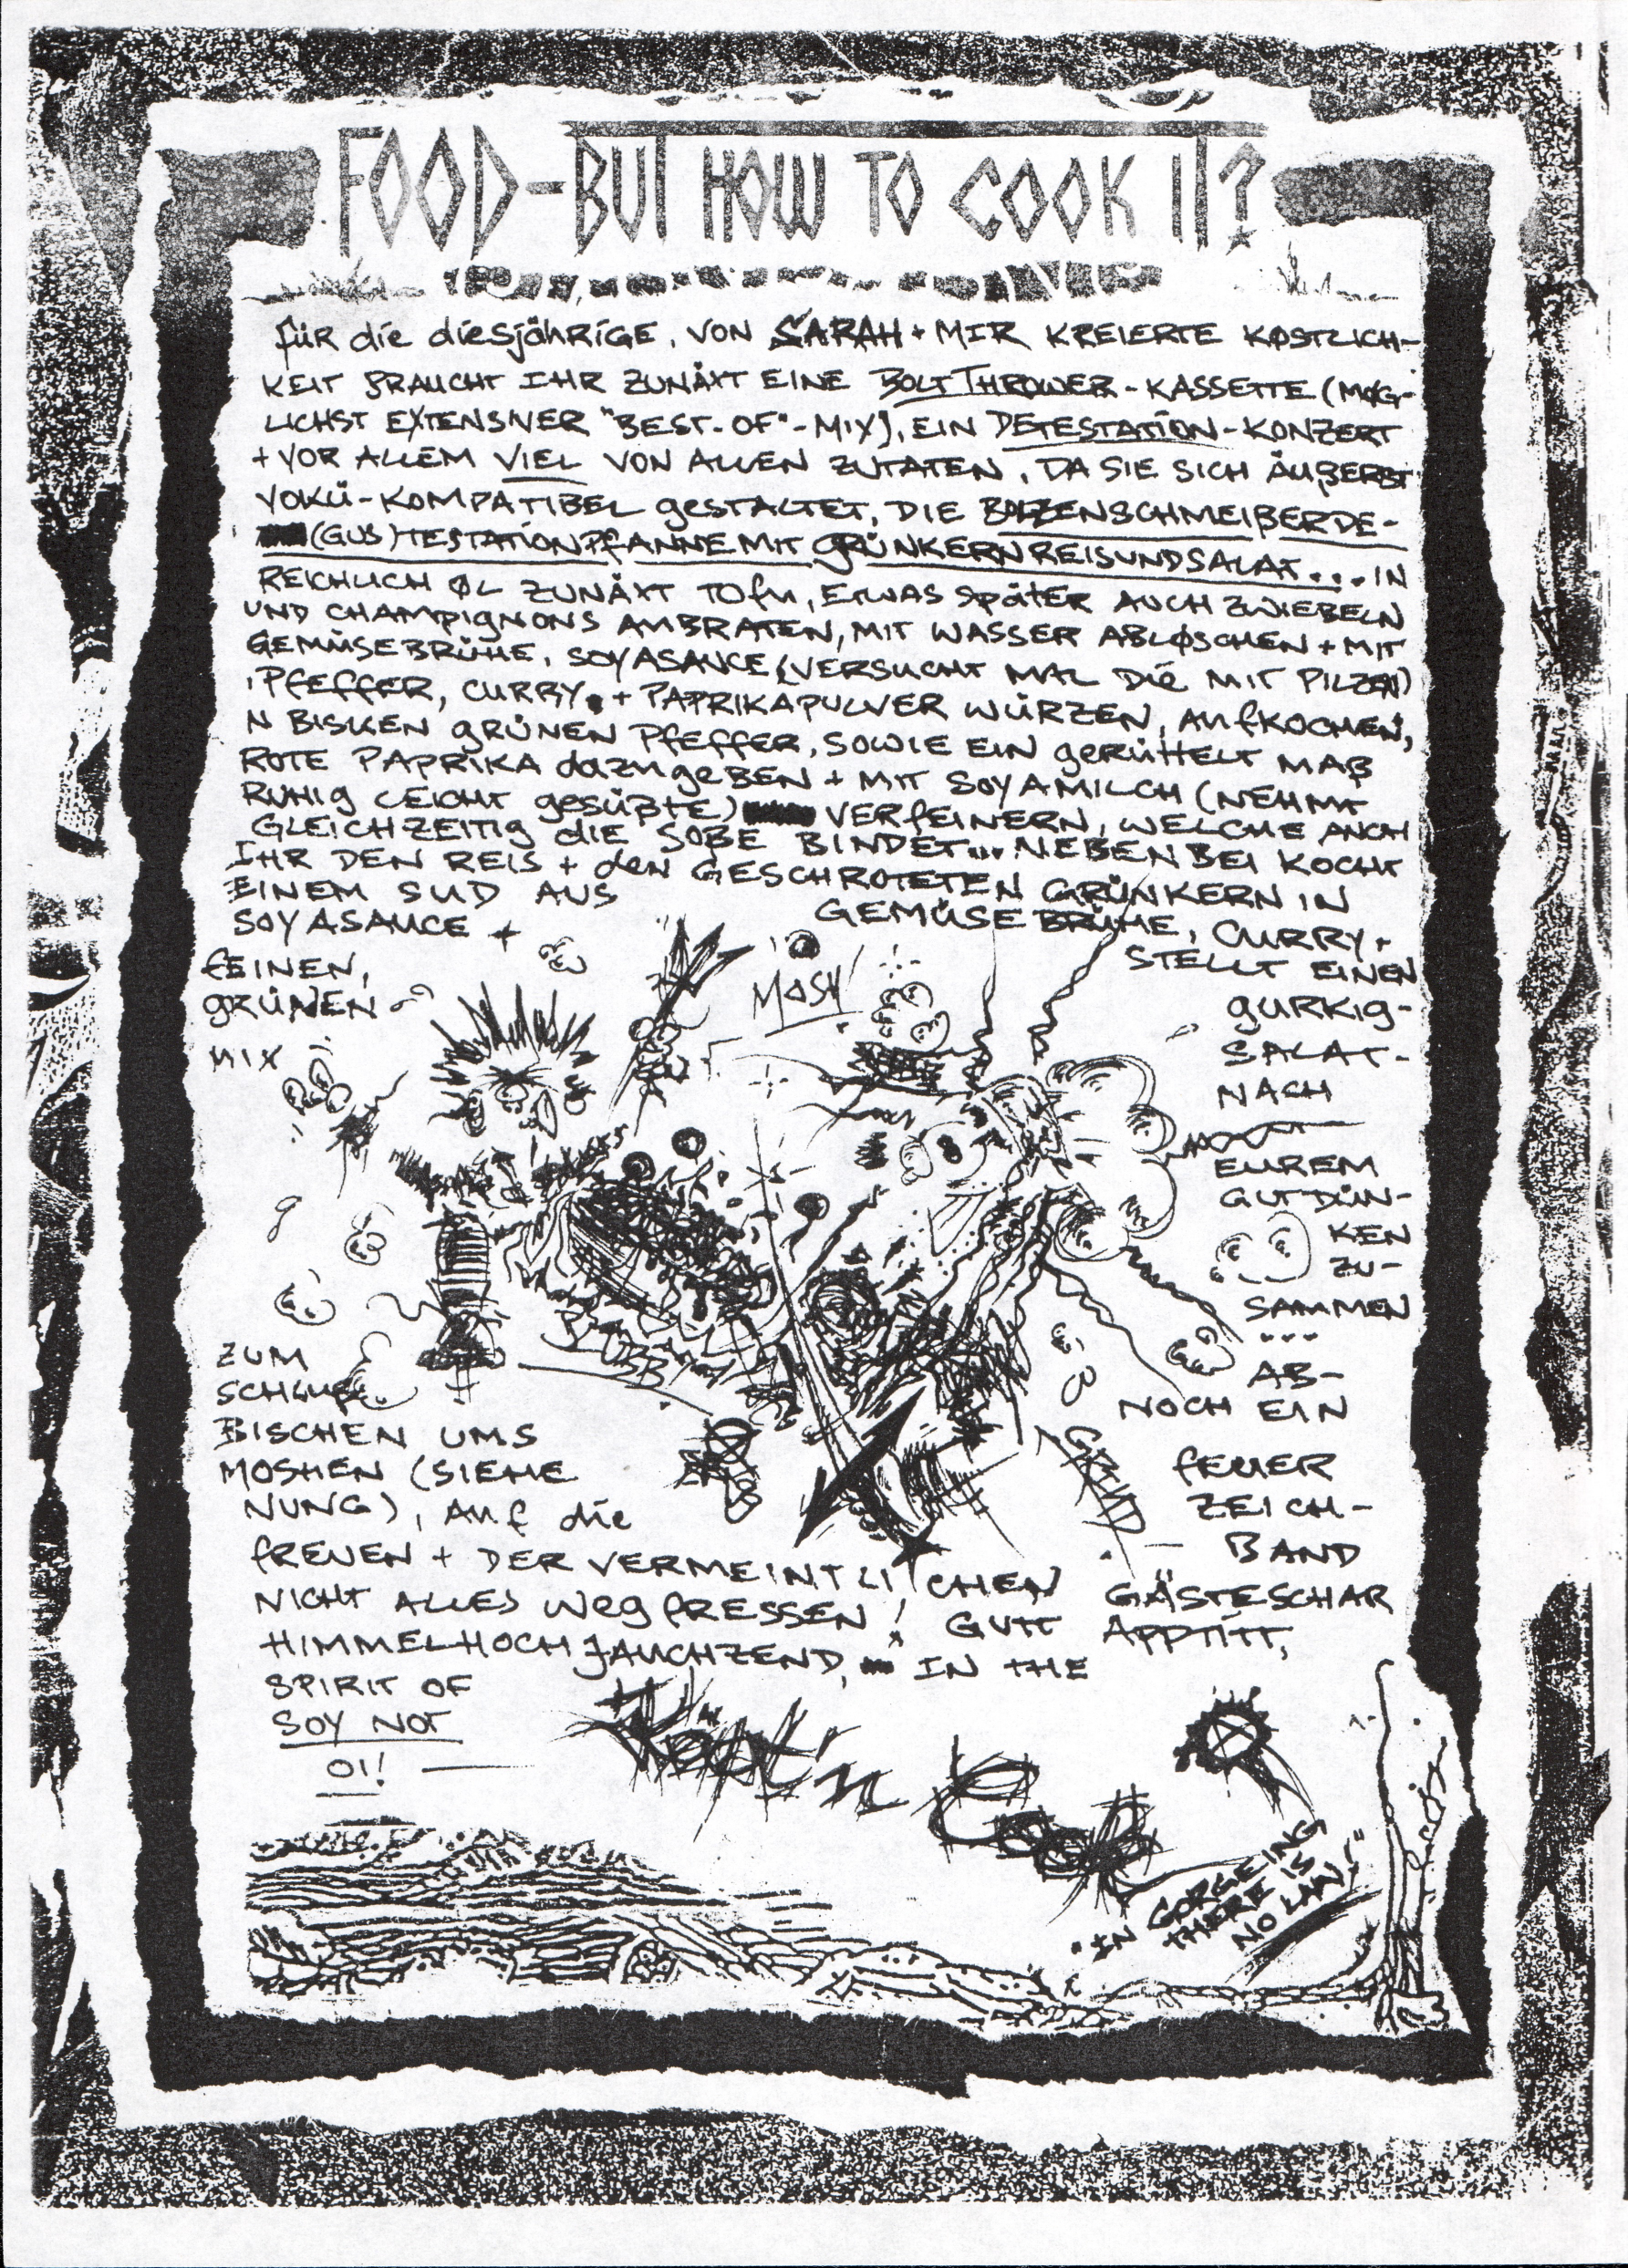 FOOD-BUT HOW TO COOK IT?
für die diesjährige, VON SARAH + MIR KREIERTE KØSTLICH-
KEIT BRAUCHT IHR ZUNÄXT EINE BOLT THROWER-KASSETTE (MØG-
LICHST EXTENSIVER "BEST-OF"-MIX), EIN DETESTATION-KONZERT
+ VOR ALLEM VIEL VON ALLEN ZUTATEN, DA SIE SICH ÄUßERST
VOKÜ-KOMPATIBEL gESTALTET, DIE BOLZENSCHMEIßERDE-
(GUS)TESTATIONPfANNEMIT GRÜNKERNREISUNDSALAT... IN
REICHLICH ØL ZUNÄXT TOfu, ETWAS SpäTER AUCH ZWIEBELN
UND CHAMPIGNONS ANBRATEN, MIT WASSER ABLØSCHEN + MIT
GEMÜSEBRÜHE, SOYASAUCE (VERSUCHT MAL DIE MIT PILZEN)
, PfEffER, CURRY + PAPRIKAPULVER WÜRZEN, AUfKOCHEN,
N BISKEN GRÜNEN PfEffER, SOWIE EIN gERÜTTELT MAß
ROTE PAPRIKA dazugeBEN + MIT SOYAMILCH (NEHMT
RUHIG LEICHT gESÜßTE) VERfEINERN, WELCHE AUCH
GLEICHZEITIg DIE SOßE BINDET... NEBENBEI KOCHT
IHR DEN REIS + deN GESCHROTETEN GRÜNKERN IN
EINEM SUD AUS GEMÜSEBRÜHE, CURRY +
SOYASAUCE + STELLT EINEN
fEINEN, gURKIg-
GRÜNEN SALAT-
MIX NACH
EUREM
GUTDÜN-
KEN
ZU-
SAMMEN
...
MOSH!
BLUBB
GRIND
ZUM AB-
SCHLUß NOCH EIN
BISCHEN UMS fEUER
MOSHEN (SIEHE ZEICH-
NUNG), AUf die BAND
fREUEN + DER VERMEINTLICHEN GÄSTESCHAR
NICHT ALLES WEgfRESSEN! GUTT APPTITT,
HIMMELHOCHJAUCHZEND, IN THE
SPIRIT OF
SOY NOT
OI!
Käpt'n Cook
"IN GORGEING
THERE IS
NO LAW!"